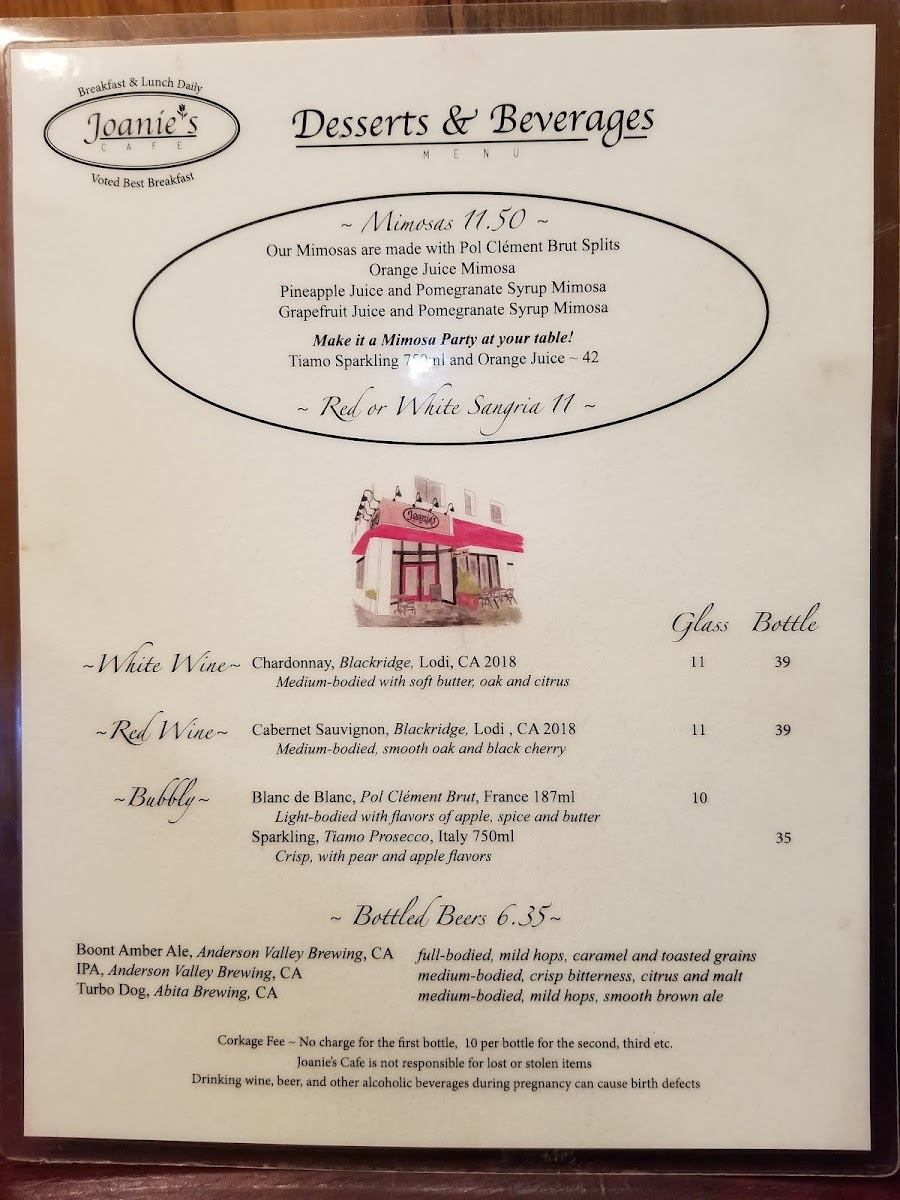 Breakfast & Lunch Daily
Joanie's
CAFE
Voted Best Breakfast
Desserts & Beverages
MENU
~ Mimosas 11.50 ~
Our Mimosas are made with Pol Clément Brut Splits
Orange Juice Mimosa
Pineapple Juice and Pomegranate Syrup Mimosa
Grapefruit Juice and Pomegranate Syrup Mimosa
Make it a Mimosa Party at your table!
Tiamo Sparkling 750ml and Orange Juice ~ 42
~ Red or White Sangria 11 ~
Joanie's
Glass Bottle
~White Wine~ Chardonnay, Blackridge, Lodi, CA 2018 11 39
Medium-bodied with soft butter, oak and citrus
~Red Wine~ Cabernet Sauvignon, Blackridge, Lodi , CA 2018 11 39
Medium-bodied, smooth oak and black cherry
~Bubbly~ Blanc de Blanc, Pol Clément Brut, France 187ml 10
Light-bodied with flavors of apple, spice and butter
Sparkling, Tiamo Prosecco, Italy 750ml 35
Crisp, with pear and apple flavors
~ Bottled Beers 6.35~
Boont Amber Ale, Anderson Valley Brewing, CA full-bodied, mild hops, caramel and toasted grains
IPA, Anderson Valley Brewing, CA medium-bodied, crisp bitterness, citrus and malt
Turbo Dog, Abita Brewing, CA medium-bodied, mild hops, smooth brown ale
Corkage Fee ~ No charge for the first bottle, 10 per bottle for the second, third etc.
Joanie's Cafe is not responsible for lost or stolen items
Drinking wine, beer, and other alcoholic beverages during pregnancy can cause birth defects